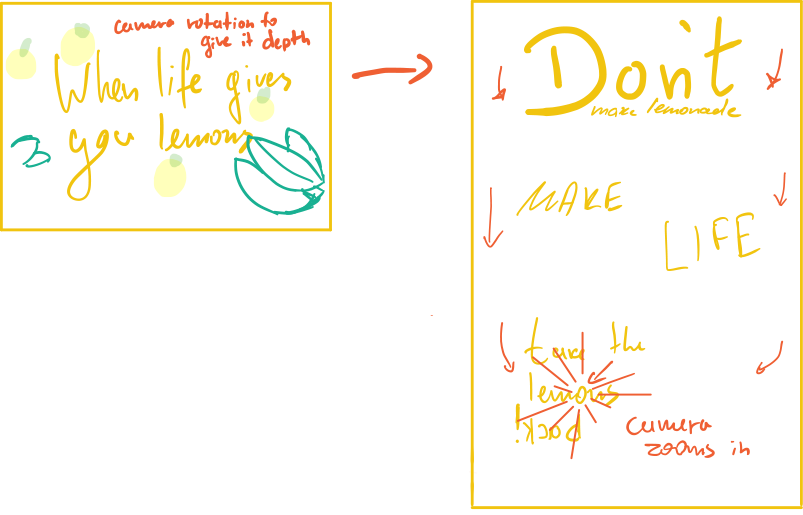 camera rotation to
give it depth
When life gives
you lemons
Don't
make lemonade
MAKE
LIFE
take the
lemons
back!
camera
zooms in